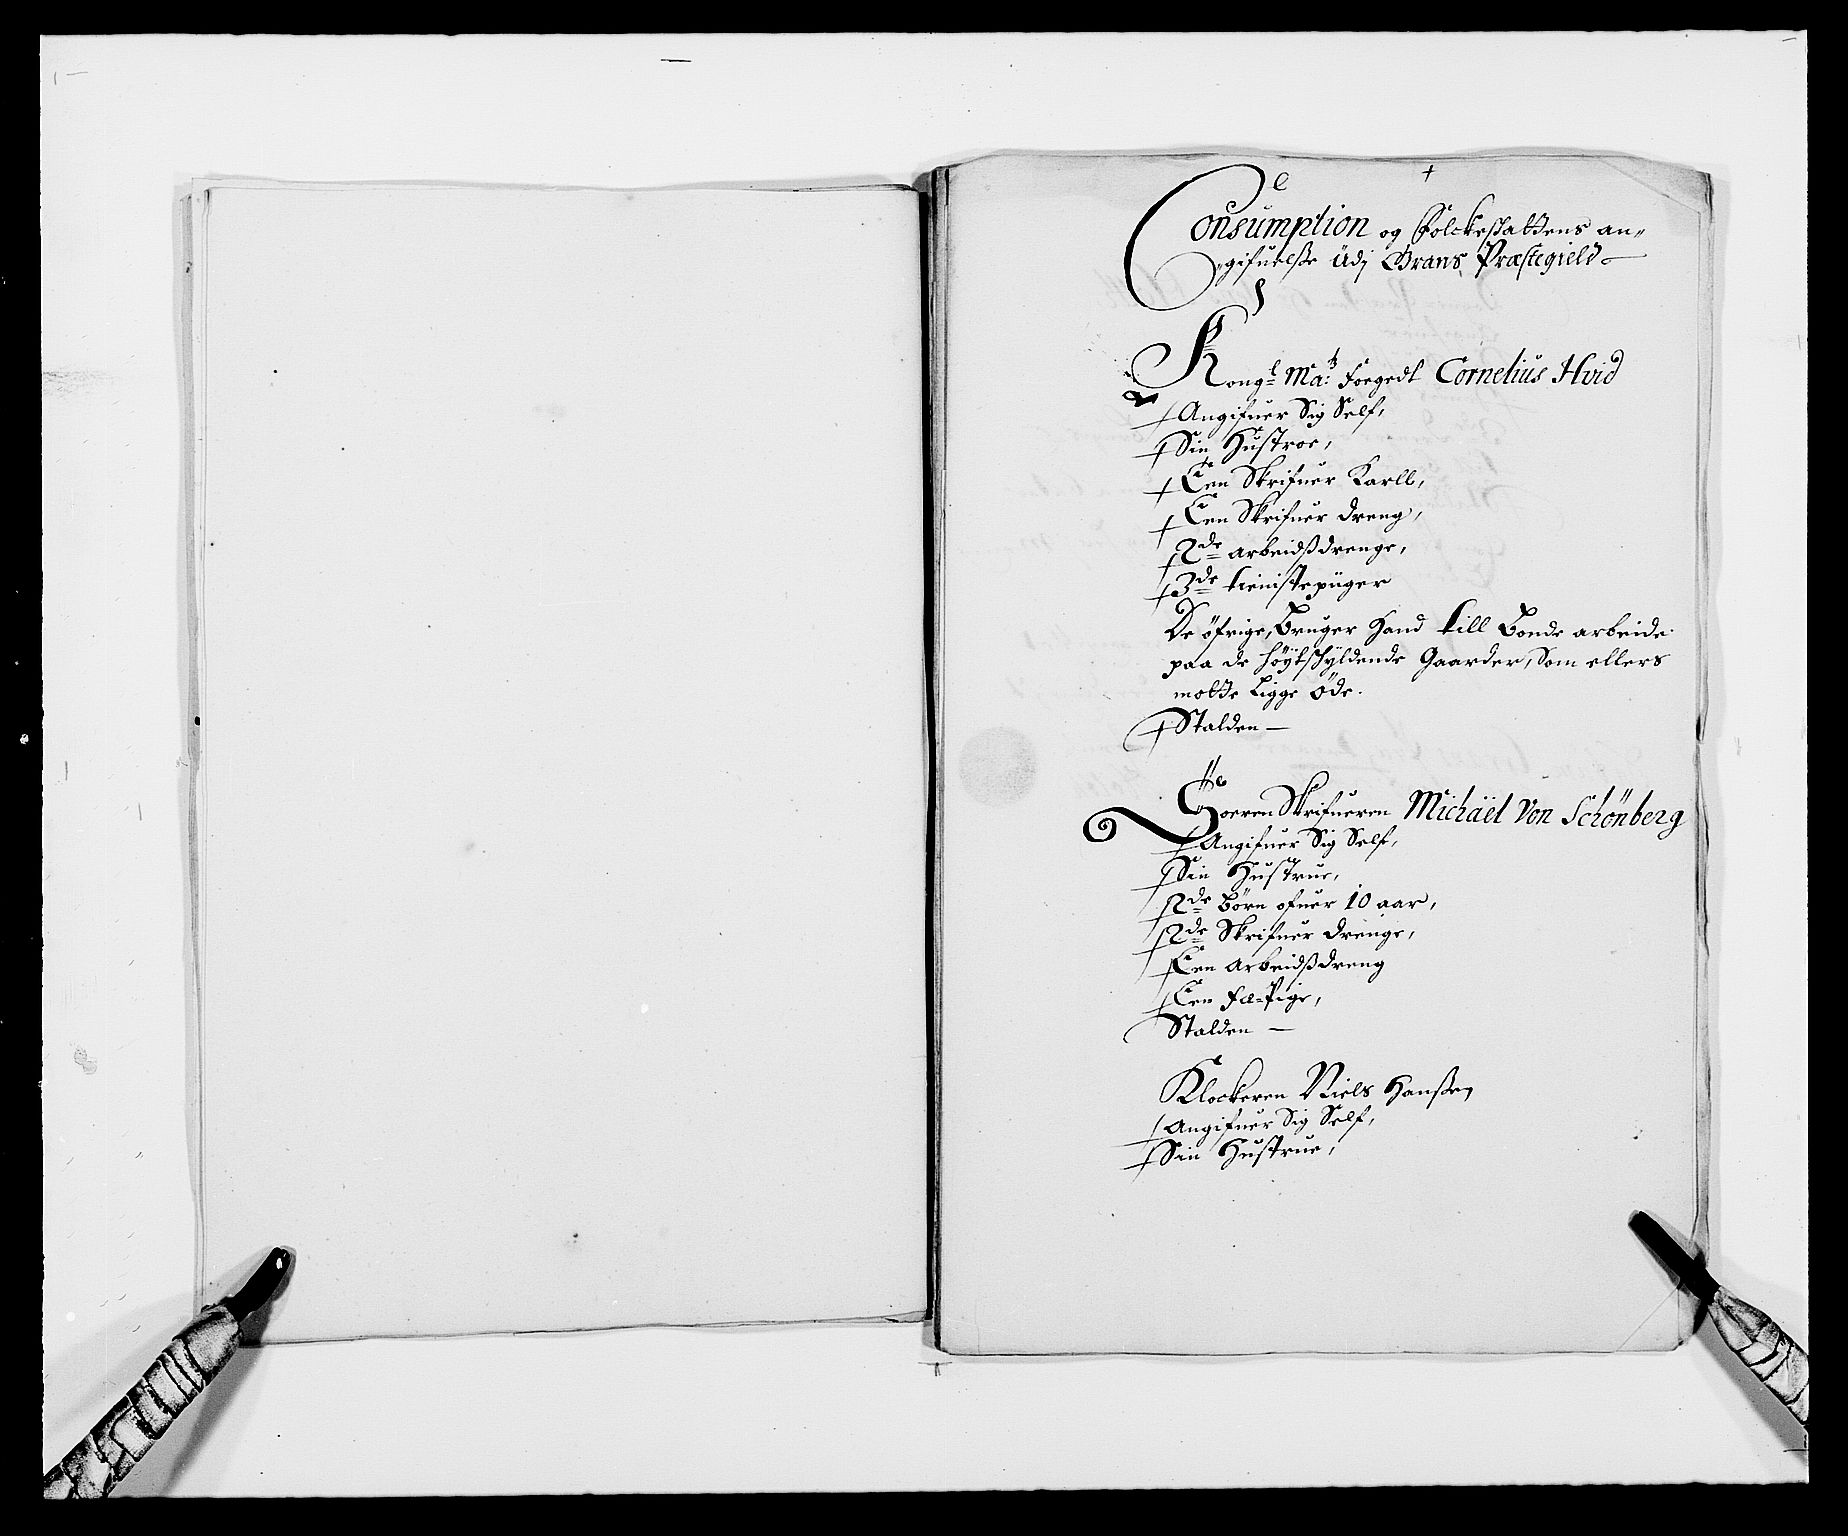 Consumption og Folckeskattens an„
„gifuelsse Udj Grans Præstegield
Kongl Mats: foegedt Cornelius Hvid
Angifuer Sig Self,
Sin Hustroe,
Een Skrifuer Karll,
Een Skrifuer dreng,
2de arbeidssdrenge,
3de tienistepiiger
De öfrige, Bruger Hand till Bonde arbeide
paa de höÿtskyldende Gaarder, Som ellers
motte Ligge öde.
Stalden —
Soeren Skrifueren Michäel Von Schönberg
Angifuer Sig Self,
Sin Hustrue,
2de Börn ofuer 10 aar,
2de Skrifuer drenge,
Een Arbeidssdreng
Een Fæ-Pige,
Stalden —
Klockeren Niels Hanssen
Angifuer Sig Self,
Sin Hustrue,